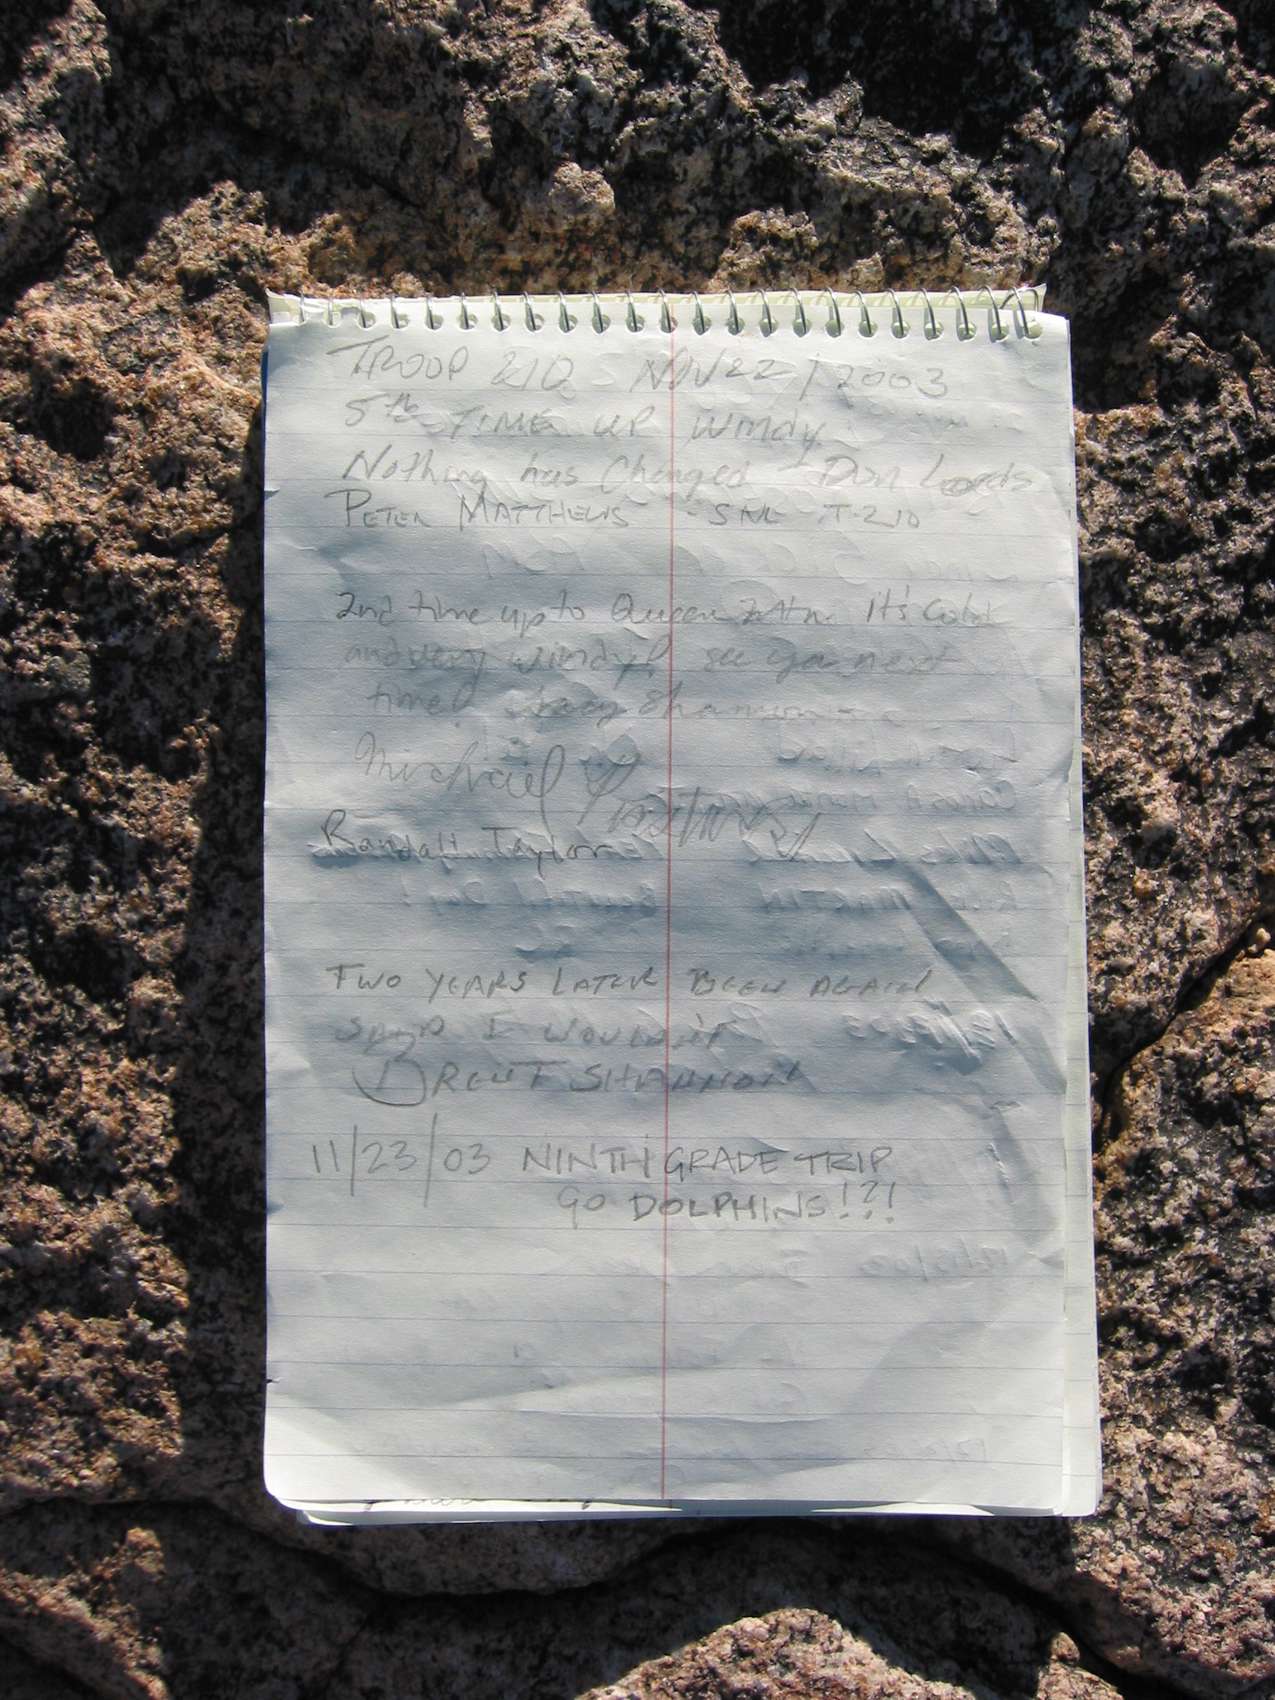 TROOP 210 - NOV 22 / 2003
5th TIME UP windy
Nothing has Changed Don
PETER MATTHEWS T-210
2nd time up to Queen Mtn. It's Cold
and very windy!! see ya next
time!
Michael
Randall Taylor
TWO YEARS LATER BEEN AGAIN
SAID I WOULDN'T
BRENT SHANNON
11/23/03 NINTH GRADE TRIP
GO DOLPHINS!?!